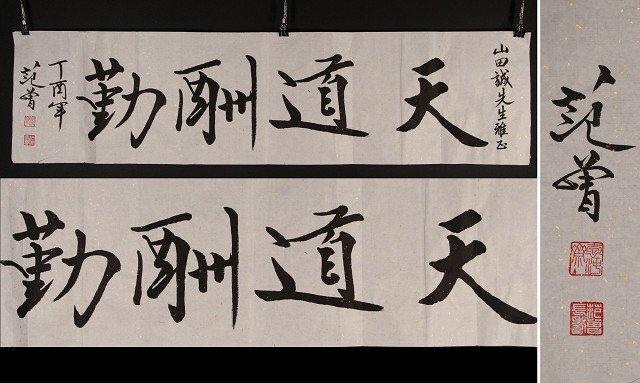 山田誠先生雅正
天道酬勤
丁酉年
范曾
天道酬勤
范曾